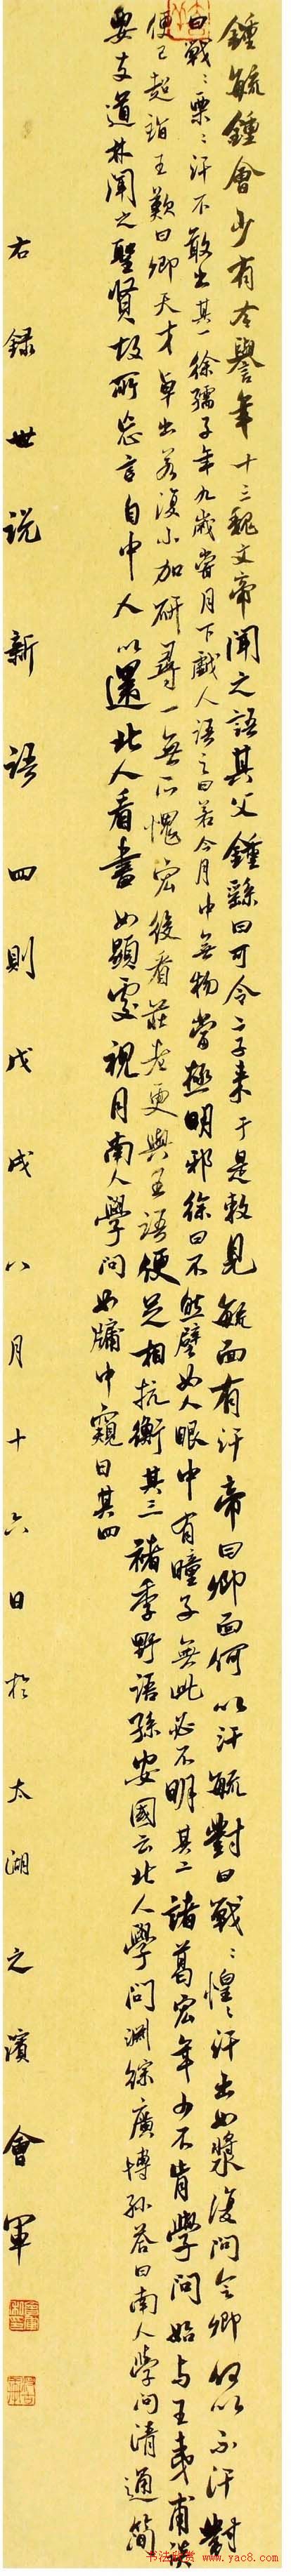 鍾毓鍾會少有令譽年十三魏文帝聞之語其父鍾繇曰可令二子来于是敕見毓面有汗帝曰卿面何以汗毓對曰戰〻惶〻汗出如漿復問會卿何以不汗對
曰戰〻栗〻汗不敢出其一徐孺子年九歲嘗月下戲人語之曰若令月中無物當極明邪徐曰不然譬如人眼中有瞳子無此必不明其二諸葛宏年少不肯學問始与王夷甫談
便已超詣王歎曰卿天才卓出若復小加研尋一無所愧宏後看莊老更與王語便足相抗衡其三褚季野語孫安國云北人學問淵綜廣博孙答曰南人學问清通简
要支道林聞之曰聖賢故所忘言自中人以還北人看書如顯處視月南人學问如牖中窺日其四
右録世说新语四则戊戌八月十六日於太湖之濱會軍
书法欣赏 www.yac8.com